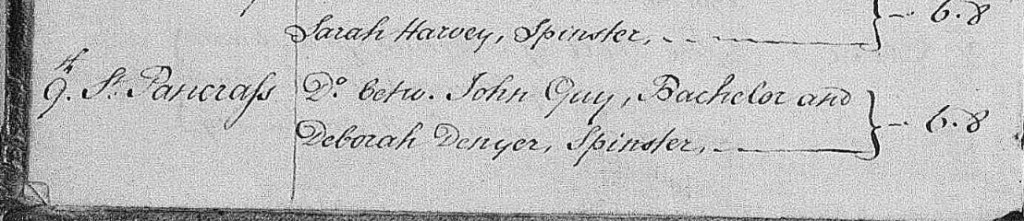 Sarah Harvey, Spinster, — 6.8
9.th St. Pancraſs Do. betw. John Guy, Bachelor and
Deborah Denyer, Spinster, — 6.8